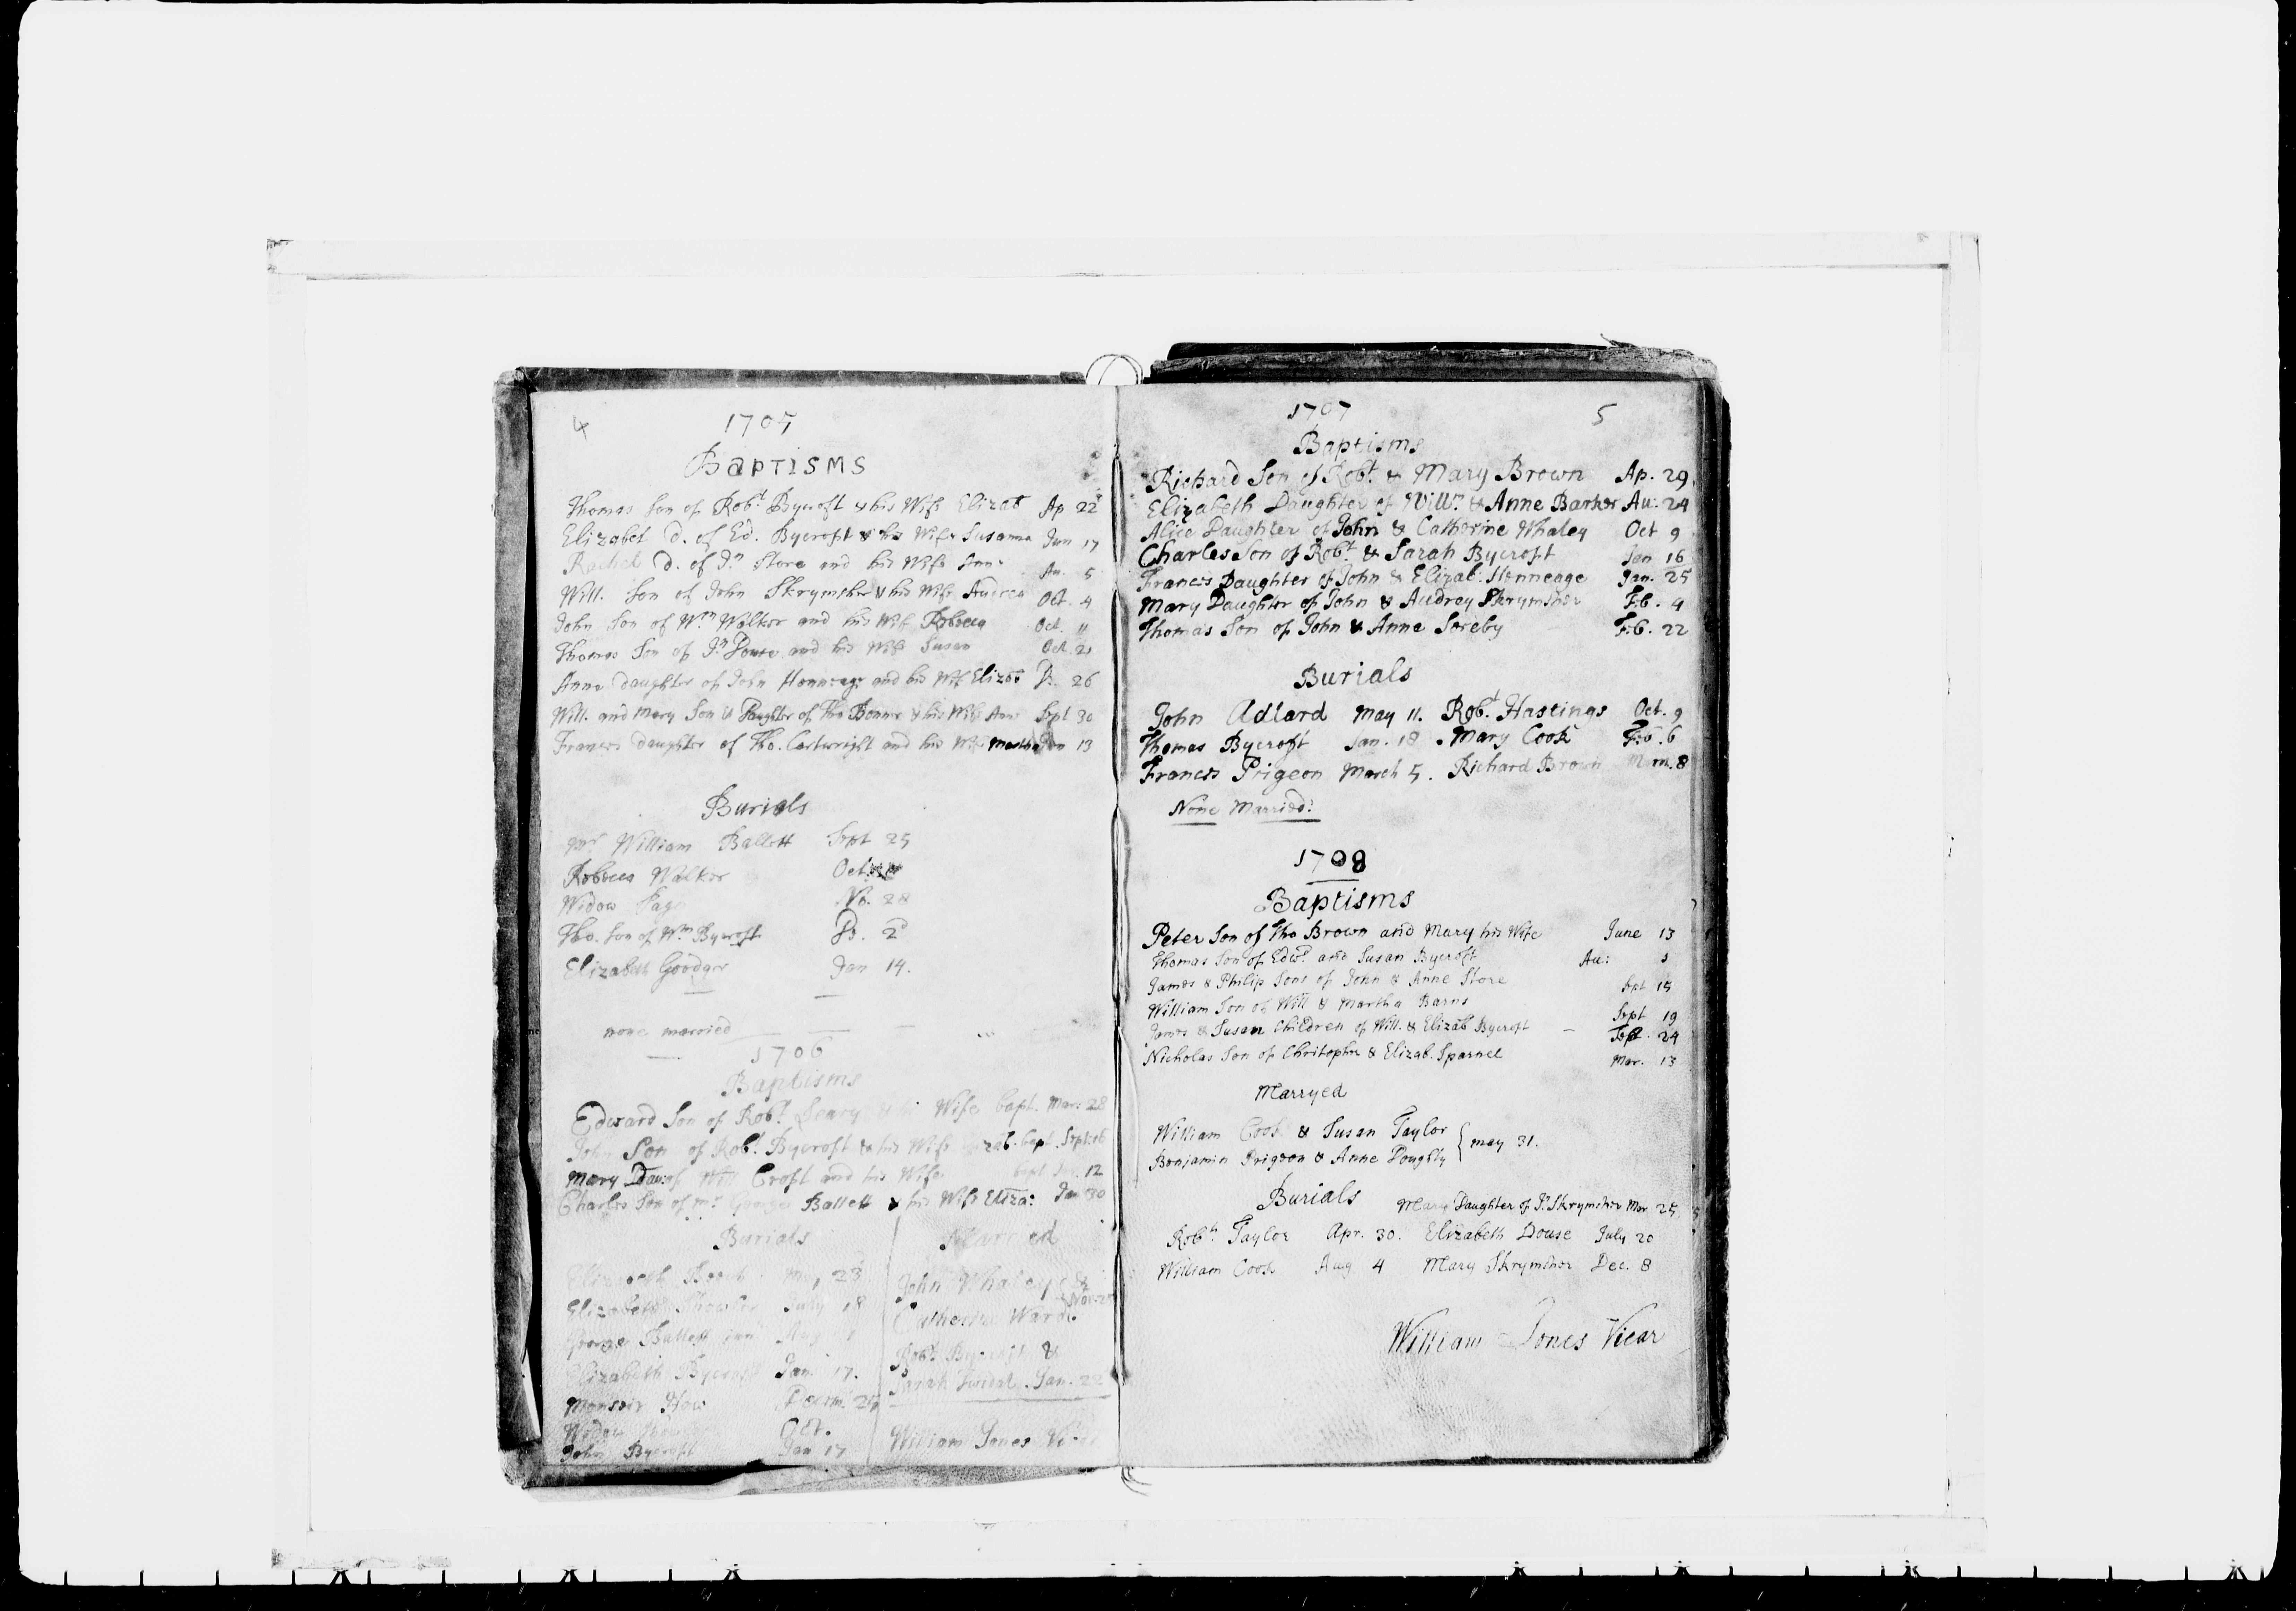 4
1705
Baptisms
Thomas Son of Robt Bycroft & his Wife Elizab Ap 22
Elizabet d. of Ed. Bycroft & his Wife Susanna Jun 17
Rachel d. of Jn Store and his Wife Ann Au. 5
Will. Son of John Skrymsher & his Wife Audrea Oct. 4
John Son of Wm Walker and his Wif Rebecca Oct. 11
Thomas Son of Jn Douse and his Wife Susan Oct. 21
Anne daughter of John Henneage and his Wif Elizab D. 26
Will. and Mary Son & Daughter of Tho Bonner & his Wife Ann Sept 30
Frances daughter of Tho. Cartwright and his Wife Martha Jan 13
Burials
Mr William Ballett Sept 25
Rebecca Walker Oct
Widow No. 28
Tho. Son of Wm Bycroft D. 2
Elizabet Goodger Jan 14.
none married
1706
Baptisms
Edward Son of Robt. Wife bapt. Mar: 28
John Son of Robt. Bycroft & his Wife bapt. Sept: 16
Mary Dau: of Will Croft and his Wife bapt 12
Charles Son of Mr George Ballett & his Wife Eliza: Jan 30
Burials
May 23
Elizabeth July 18
George Ballett
Elizabeth Bycroft Jan 17.
Decem. 25
Widow Oct.
John Bycroft Jan 17
Married
John Whaley &
Catherine Ward Nov.
Robt. Bycroft &
Sarah Jan. 22
William Jones Vicar
5
1707
Baptisms
Richard Son of Robt. & Mary Brown Ap. 29
Elizabeth Daughter of Willm. & Anne Barker Au: 24
Alice Daughter of John & Catherine Whaley Oct 9
Charles Son of Robt. & Sarah Bycroft Jan 16
Frances Daughter of John & Elizab: Henneage Jan. 25
Mary Daughter of John & Audrey Skrymsher Feb. 9
Thomas Son of John & Anne Soreby Feb. 22
Burials
John Adlard May 11. Robt. Hastings Oct. 9
Thomas Bycroft Jan. 18. Mary Cook Feb. 6
Frances Prigeon March 5. Richard Brown 8
None Married:
1708
Baptisms
Peter Son of Tho Brown and Mary his Wife June 13
Thomas Son of Edwd. and Susan Bycroft Au:
James & Philip Sons of John & Anne Store Sept 15
William Son of Will & Martha Barns Sept 19
James & Susan Children of Will. & Elizab Bycroft – Sept. 24
Nicholas Son of Christopher & Elizab. Sparnel Mar. 13
Marryed
William Cook & Susan Taylor
Benjamin Prigeon & Anne Doughty } May 31.
Burials
Mary Daughter of Jn Skrymsher Mar. 25
Robt. Taylor Apr. 30. Elizabeth Douse July 20
William Cook Aug 4 Mary Skrymsher Dec. 8
William Jones Vicar